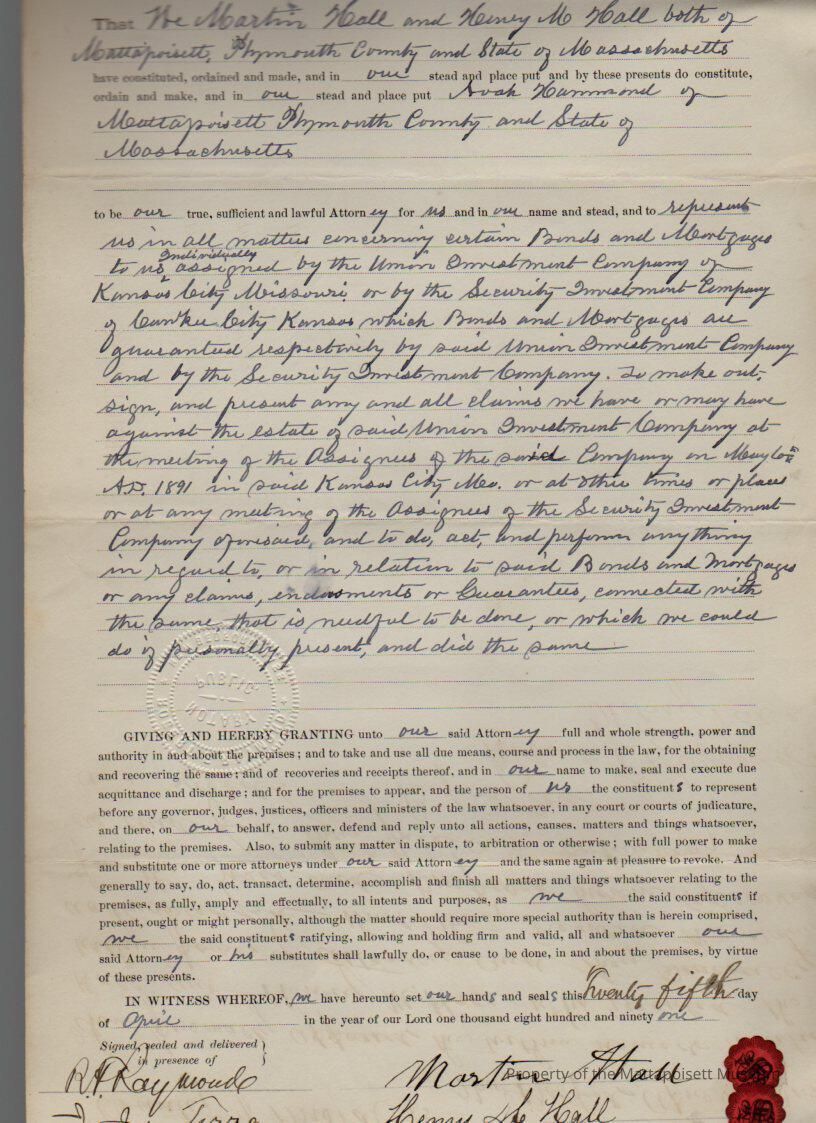 That We Martin Hall and Henry M Hall both of
Mattapoisett, Plymouth County and State of Massachusetts
have constituted, ordained and made, and in our stead and place put and by these presents do constitute,
ordain and make, and in our stead and place put Noah Hammond of
Mattapoisett Plymouth County and State of
Massachusetts
to be our true, sufficient and lawful Attorn ey for us and in our name and stead, and to represent
us in all matters concerning certain Bonds and Mortgages
Individually
to us, assigned by the Union Investment Company of
Kansas City Missouri, or by the Security Investment Company
of Cawker City Kansas which Bonds and Mortgages are
guaranteed respectively by said Union Investment Company
and by the Security Investment Company. To make out,
sign, and present any and all claims we have or may have
against the estate of said Union Investment Company at
the meeting of the Assignees of the said Company on May
A.D. 1891 in said Kansas City Mo. or at other times or places
or at any meeting of the Assignees of the Security Investment
Company aforesaid, and to do, act, and perform anything
in regard to, or in relation to said Bonds and Mortgages
or any claims, endorsments or Guarantees, connected with
the same, that is needful to be done, or which we could
do if personally present, and did the same
NOTARY PUBLIC
GIVING AND HEREBY GRANTING unto our said Attorn ey full and whole strength, power and
authority in and about the premises; and to take and use all due means, course and process in the law, for the obtaining
and recovering the same; and of recoveries and receipts thereof, and in our name to make, seal and execute due
acquittance and discharge; and for the premises to appear, and the person of us the constituents to represent
before any governor, judges, justices, officers and ministers of the law whatsoever, in any court or courts of judicature,
and there, on our behalf, to answer, defend and reply unto all actions, causes, matters and things whatsoever,
relating to the premises. Also, to submit any matter in dispute, to arbitration or otherwise; with full power to make
and substitute one or more attorneys under our said Attorn ey and the same again at pleasure to revoke. And
generally to say, do, act, transact, determine, accomplish and finish all matters and things whatsoever relating to the
premises, as fully, amply and effectually, to all intents and purposes, as we the said constituents if
present, ought or might personally, although the matter should require more special authority than is herein comprised,
we the said constituents ratifying, allowing and holding firm and valid, all and whatsoever our
said Attorn ey or his substitutes shall lawfully do, or cause to be done, in and about the premises, by virtue
of these presents.
IN WITNESS WHEREOF, we have hereunto set our hands and seals this Twenty fifth day
of April in the year of our Lord one thousand eight hundred and ninety one
Signed, sealed and delivered
in presence of
R. Raymond Martin Hall
Property of the Mattapoisett Museum
Henry M Hall